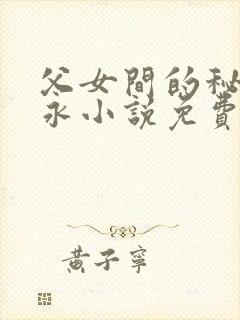 父女間的秘
永小說免費
黃子寧